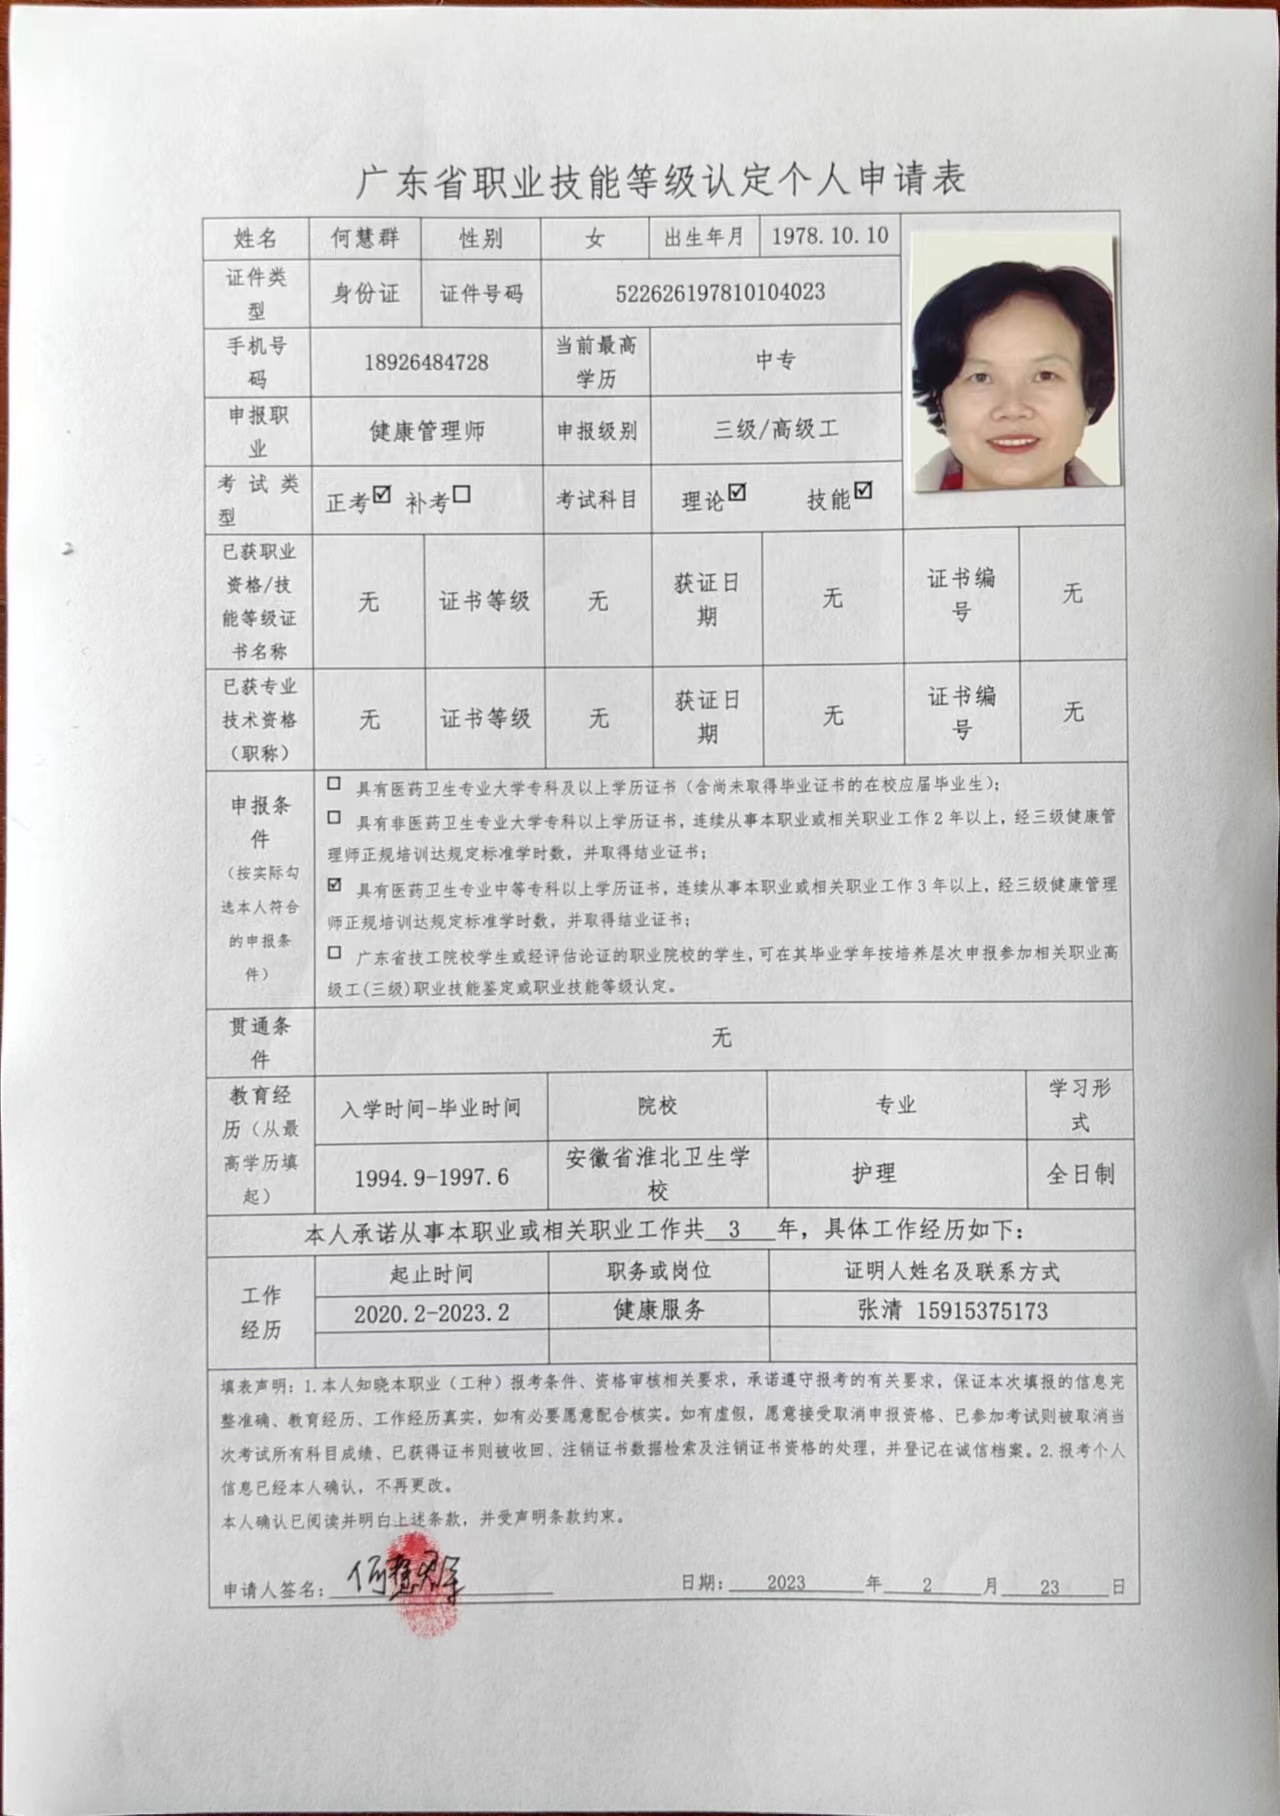 广东省职业技能等级认定个人申请表
姓名 何慧群 性别 女 出生年月 1978.10.10
证件类型 身份证 证件号码 522626197810104023
手机号码 18926484728 当前最高学历 中专
申报职业 健康管理师 申报级别 三级/高级工
考试类型 正考☑ 补考☐ 考试科目 理论☑ 技能☑
已获职业资格/技能等级证书名称 无 证书等级 无 获证日期 无 证书编号 无
已获专业技术资格（职称） 无 证书等级 无 获证日期 无 证书编号 无
申报条件（按实际勾选本人符合的申报条件）
☐ 具有医药卫生专业大学专科及以上学历证书（含尚未取得毕业证书的在校应届毕业生）；
☐ 具有非医药卫生专业大学专科以上学历证书，连续从事本职业或相关职业工作2年以上，经三级健康管
理师正规培训达规定标准学时数，并取得结业证书；
☑ 具有医药卫生专业中等专科以上学历证书，连续从事本职业或相关职业工作3年以上，经三级健康管理
师正规培训达规定标准学时数，并取得结业证书；
☐ 广东省技工院校学生或经评估论证的职业院校的学生，可在其毕业学年按培养层次申报参加相关职业高
级工(三级)职业技能鉴定或职业技能等级认定。
贯通条件 无
教育经历（从最高学历填起） 入学时间-毕业时间 院校 专业 学习形式
1994.9-1997.6 安徽省淮北卫生学校 护理 全日制
本人承诺从事本职业或相关职业工作共 3 年，具体工作经历如下：
工作经历 起止时间 职务或岗位 证明人姓名及联系方式
2020.2-2023.2 健康服务 张清 15915375173
填表声明：1.本人知晓本职业（工种）报考条件、资格审核相关要求，承诺遵守报考的有关要求，保证本次填报的信息完
整准确、教育经历、工作经历真实，如有必要愿意配合核实。如有虚假，愿意接受取消申报资格、已参加考试则被取消当
次考试所有科目成绩、已获得证书则被收回、注销证书数据检索及注销证书资格的处理，并登记在诚信档案。2.报考个人
信息已经本人确认，不再更改。
本人确认已阅读并明白上述条款，并受声明条款约束。
申请人签名：何慧群 日期：2023 年 2 月 23 日